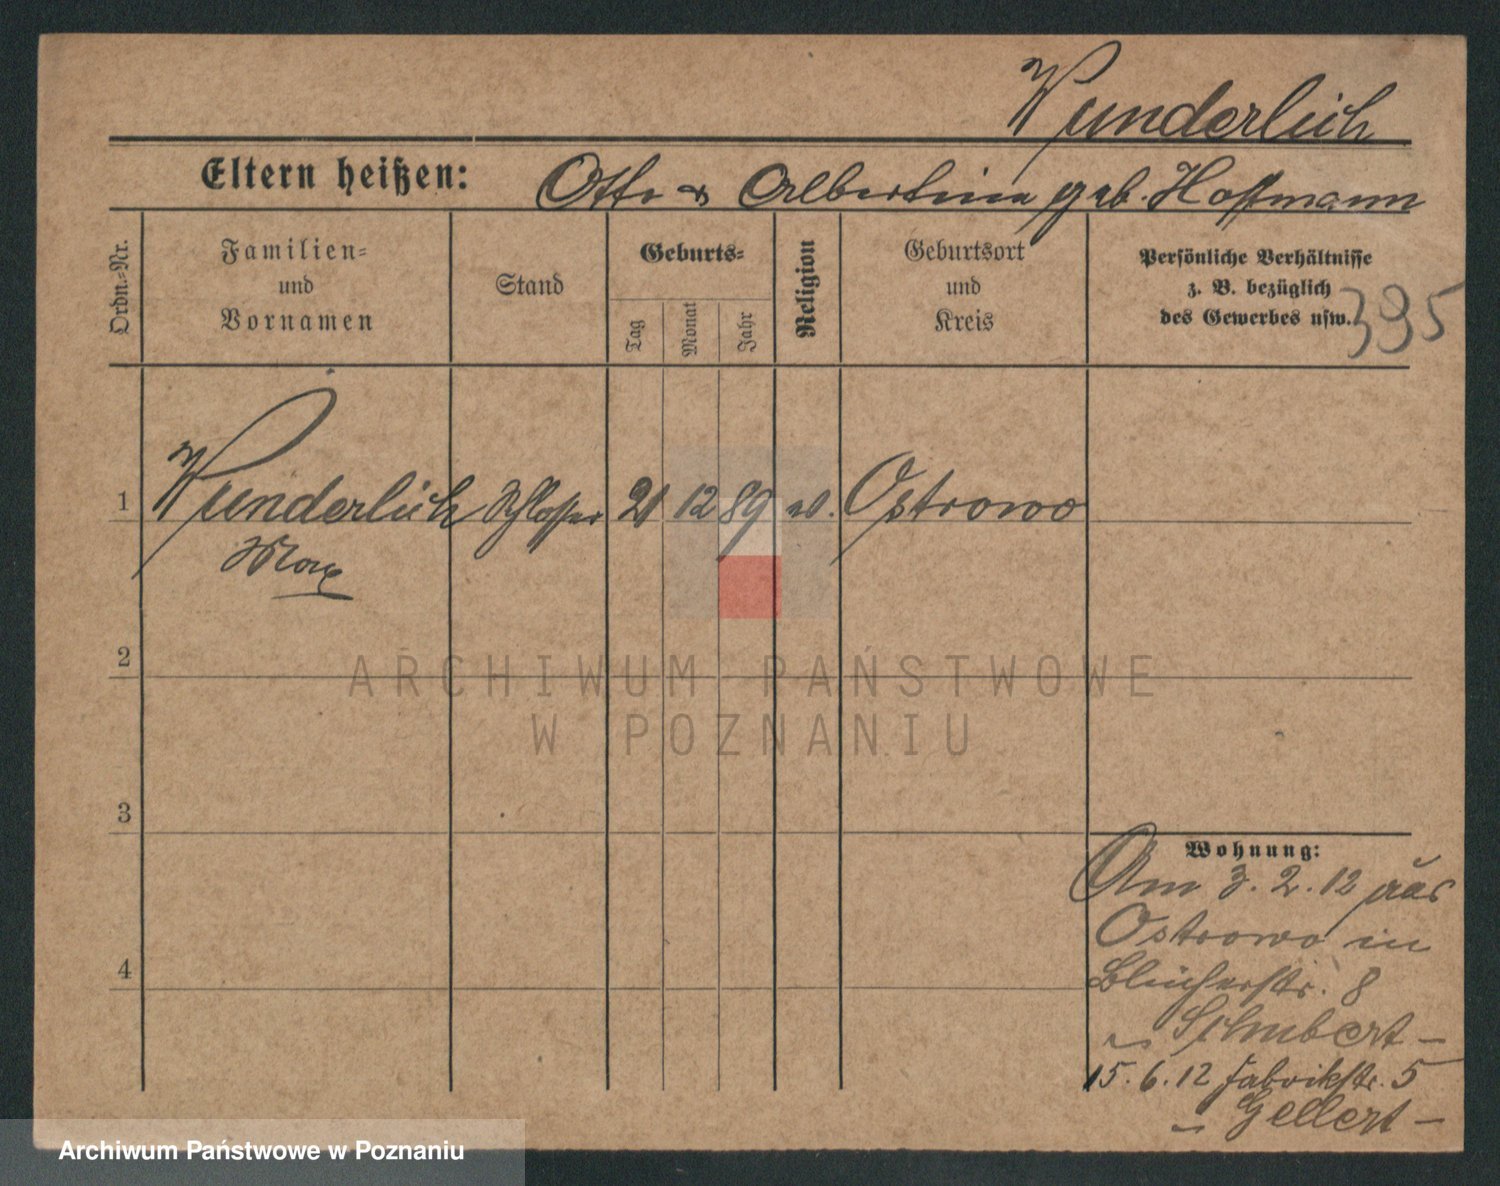 Wunderlich
Eltern heißen: Otto & Albertina geb. Hoffmann
Ordn.-Nr.
Familien-
und
Vornamen
Stand
Geburts-
Tag
Monat
Jahr
Religion
Geburtsort
und
Kreis
Persönliche Verhältnisse
z. B. bezüglich
des Gewerbes usw.
395
1 Wunderlich Schlosser 21 12 89 ev. Ostrowo
Max
2
3
4
ARCHIWUM PAŃSTWOWE
W POZNANIU
Wohnung:
Am 3. 2. 12 aus
Ostrowo in
Blücherstr. 8
Schubert -
15. 6. 12 Fabrikstr. 5
Gellert -
Archiwum Państwowe w Poznaniu